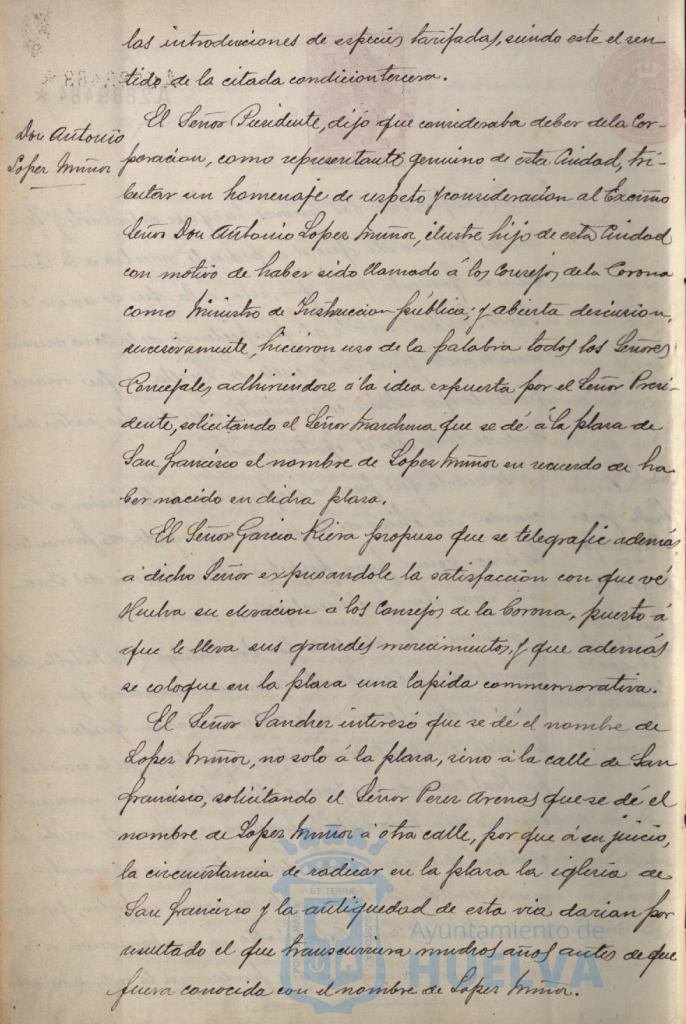 las introducciones de especies tarifadas, siendo este el sen-
tido de la citada condicion tercera.
Don Antonio
Lopez Muñoz
El Señor Presidente, dijo que consideraba deber de la Cor-
poracion, como representante genuino de esta Ciudad, tri-
butar un homenaje de respeto y consideracion al Excmo
Señor Don Antonio Lopez Muñoz, ilustre hijo de esta Ciudad
con motivo de haber sido llamado á los Consejos de la Corona
como Ministro de Instruccion pública; y abierta discusion,
sucesivamente, hicieron uso de la palabra todos los Señores
Concejales adhiriendose á la idea expuesta por el Señor Presi-
dente, solicitando el Señor Marchena que se dé á la plaza de
San francisco el nombre de Lopez Muñoz en recuerdo de ha
ber nacido en dicha plaza.
El Señor Garcia Riera propuso que se telegrafie además
á dicho Señor expresandole la satisfaccion con que vé
Huelva su elevacion á los Consejos de la Corona, puesto á
que le lleva sus grandes merecimientos, y que además
se coloque en la plaza una lapida commemorativa.
El Señor Sanchez interesó que se dé el nombre de
Lopez Muñoz, no solo á la plaza, sino á la calle de San
francisco, solicitando el Señor Perez Arenas que se dé el
nombre de Lopez Muñoz á otra calle, por que á su juicio,
la circunstancia de radicar en la plaza la iglesia de
San francisco y la antiguedad de esta via darian por
resultado el que transcurriera muchos años antes de que
fuera conocida con el nombre de Lopez Muñoz.
Ayuntamiento de
HUELVA